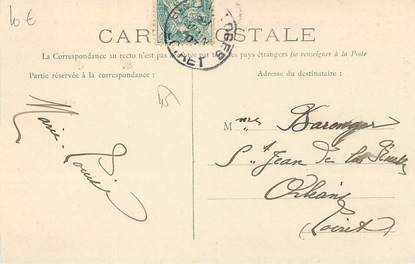 10 €
CARTE POSTALE
La Correspondance au recto n'est pas acceptée par tous les pays étrangers (se renseigner à la Poste
Partie réservée à la correspondance :
Adresse du destinataire :
45
LOIRET
Marie-Louise
Mme
St Jean de la Ruelle
Orléans
Loiret